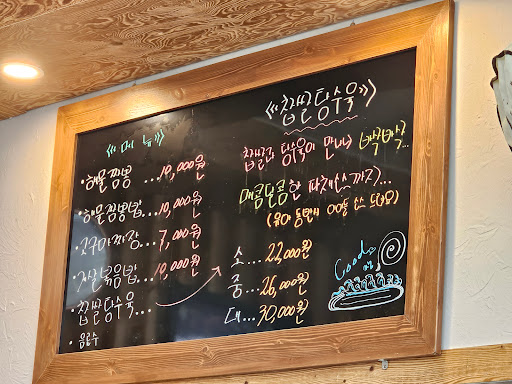 《메뉴》
·해물짬뽕 ...10,000원
·해물짬뽕밥...10,000원
·고구마짜장... 7,000원
·게살볶음밥...10,000원
·찹쌀탕수육...
·음료수
《찹쌀탕수육》
찹쌀과 탕수육이 만나 바삭바삭...
매콤달콤한 파채소스까지...
소...22,000원
중...26,000원
대...30,000원
Good